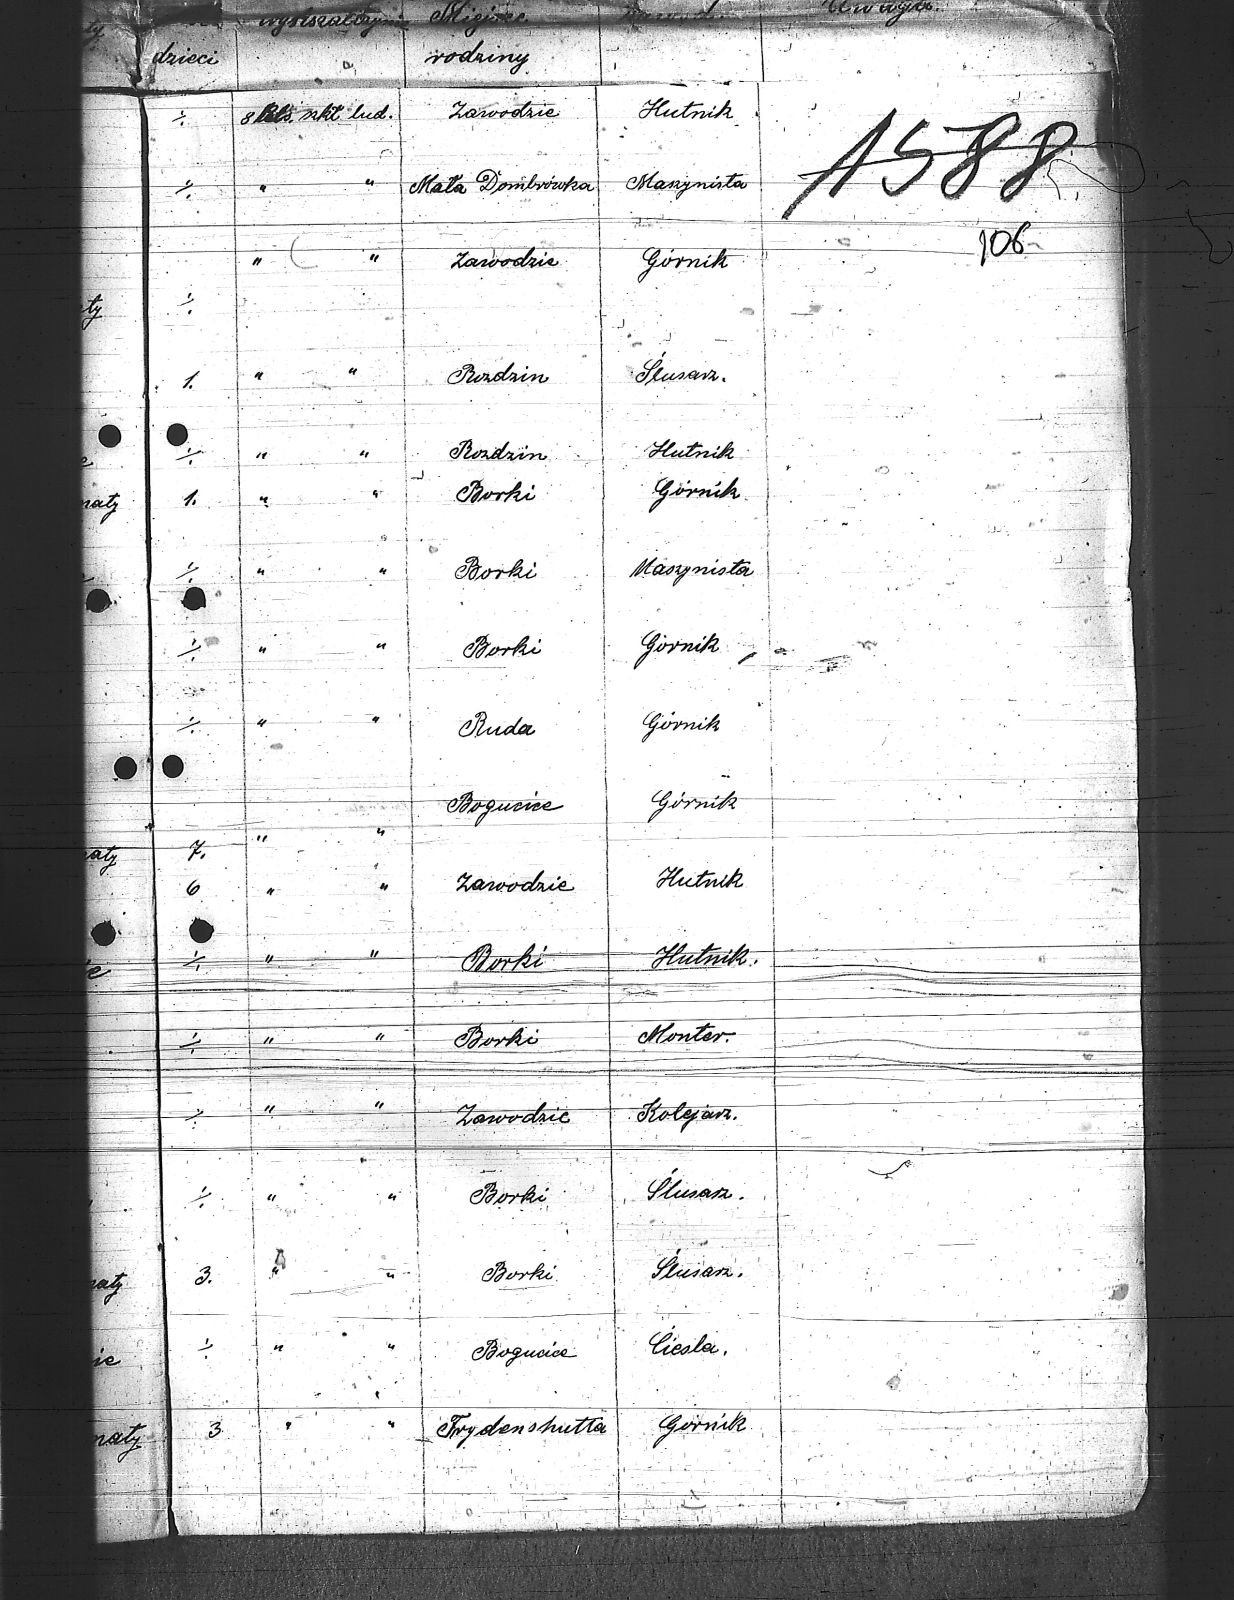 wykształcenie Miejsce zawód Uwaga.
dzieci rodziny
·/. 8 kls. szkł lud. Zawodzie Hutnik
1588
·/. " " Mała Dombrówka Maszynista
" " Zawodzie Górnik 106
·/.
1. " " Rozdzin Ślusarz.
·/. " " Rozdzin Hutnik
naty 1. " " Borki Górnik
·/. " " Borki Maszynista
·/. " " Borki Górnik
·/. " " Ruda Górnik
Bogucice Górnik
aty 7. " "
6 " " Zawodzie Hutnik
·/. " " Borki Hutnik.
·/. " " Borki Monter.
·/. " " Zawodzie Kolejarz.
·/. " " Borki Ślusarz.
naty 3. " " Borki Ślusarz.
ie ·/. " " Bogucice Ciesla.
naty 3 " " Frydenshutta Górnik